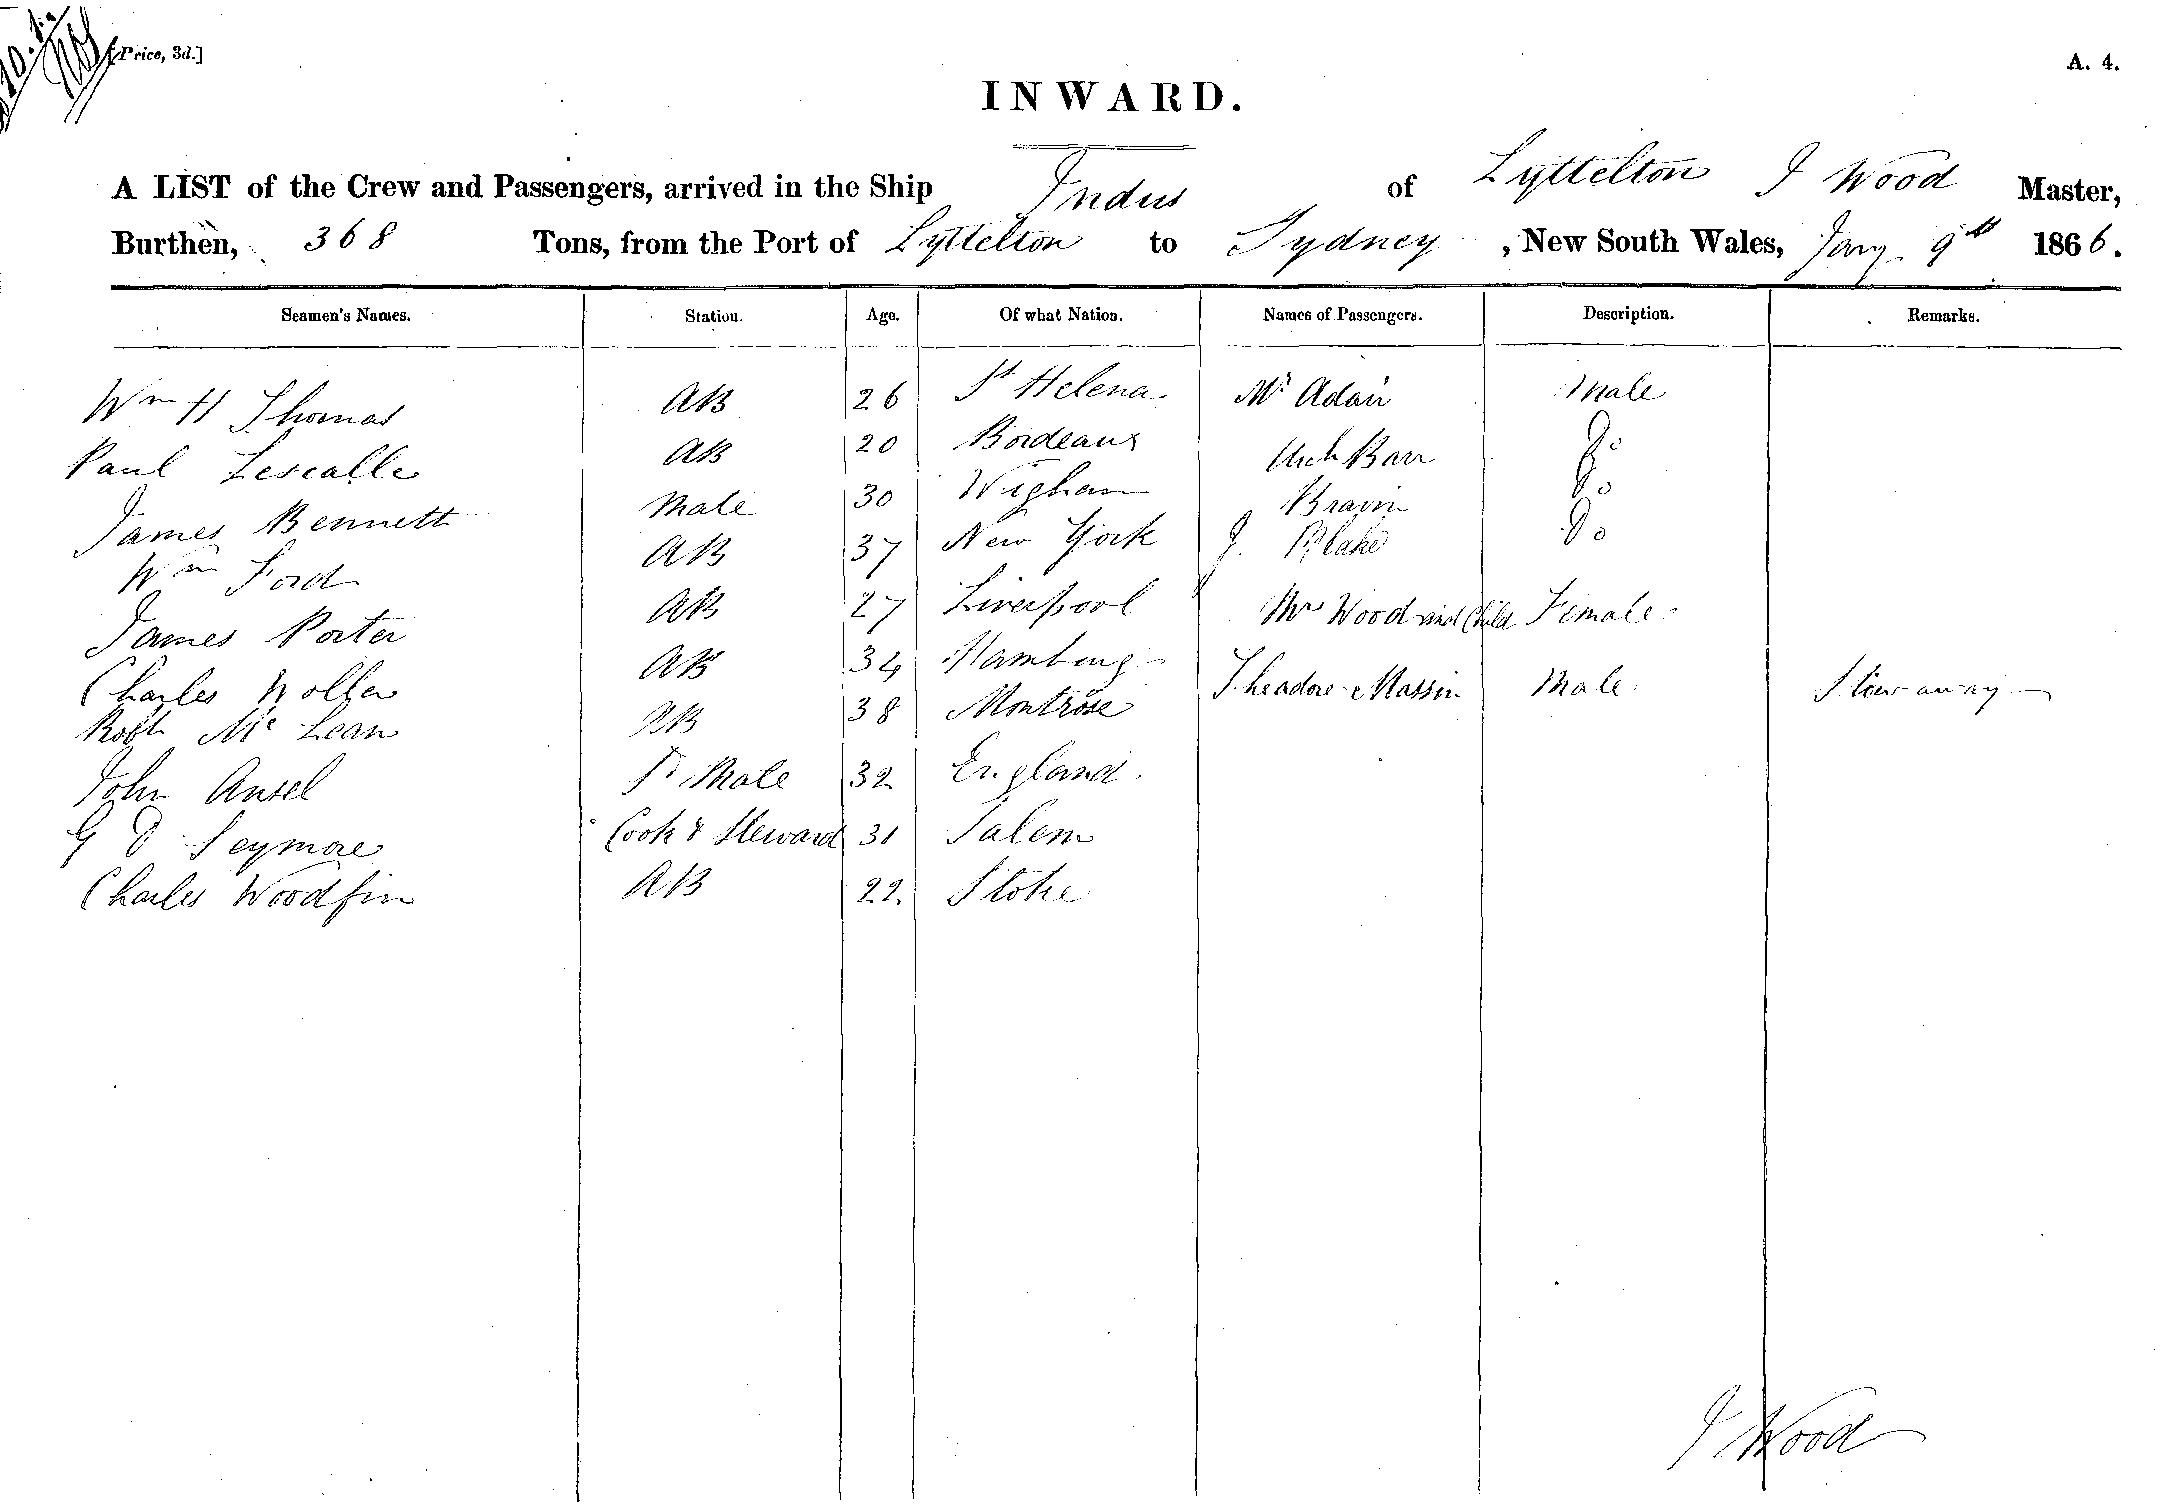 [Price, 3d.]
A. 4.
INWARD.
A LIST of the Crew and Passengers, arrived in the Ship Indus of Lyttelton J Wood Master,
Burthen, 368 Tons, from the Port of Lyttelton to Sydney, New South Wales, Jany 9th 1866.
Seamen's Names. Station. Age. Of what Nation. Names of Passengers. Description. Remarks.
Wm H Thomas AB 26 St Helena Mr Adair Male
Paul Lescalle AB 20 Bordeaux Arch Barr Do
James Bennett Mate 30 Wigham Bravin Do
Wm Ford AB 37 New York J. Blake Do
James Porter AB 27 Liverpool Mrs Wood and Child Female
Charles AB 34 Hamburg Theadore Massin Male Stowaway
Robt Mc Lean AB 38 Montrose
John Ansel Mate 32 England
G D Seymore Cook & Steward 31 Salem
Charles Woodfin AB 22 Stoke
J Wood